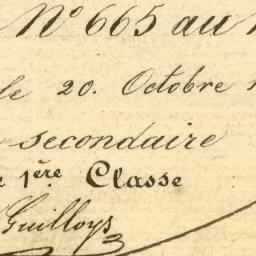 N° 665 au
le 20. Octobre
secondaire
1ère Classe
Guilloys